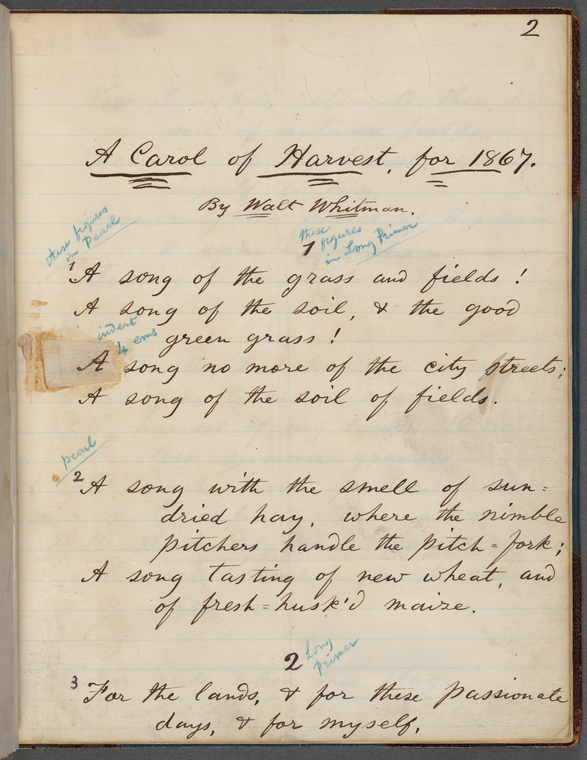 2
A Carol of Harvest, for 1867.
By Walt Whitman.
these figures
in Pearl
these
figures
in Long Primer
1
1 A song of the grass and fields!
A song of the soil, & the good
indent
4 ems
green grass!
A song no more of the city streets;
A song of the soil of fields.
pearl
2 A song with the smell of sun=
dried hay, where the nimble
pitchers handle the pitch=fork;
A song tasting of new wheat, and
of fresh=husk'd maize.
2
Long
Primer
3 For the lands, & for these passionate
days, & for myself,